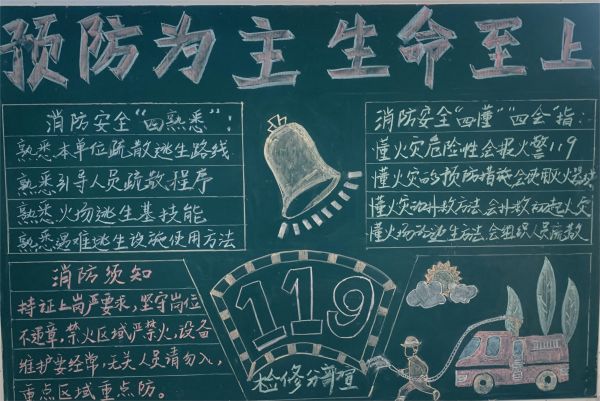 预防为主生命至上
消防安全"四熟悉"：
熟悉本单位疏散逃生路线
熟悉引导人员疏散程序
熟悉火场逃生基技能
熟悉遇难逃生设施使用方法
消防安全"四懂""四会"指：
懂火灾危险性会报火警119
懂火灾的预防措施会使用火器
懂火灾扑救方法会扑救初起火灾
懂火场逃生方法会组织人员疏散
消防须知
持证上岗严要求，坚守岗位
不违章，禁火区域严禁火，设备
维护要经常，无关人员请勿入，
重点区域重点防。
119
检修分部宣